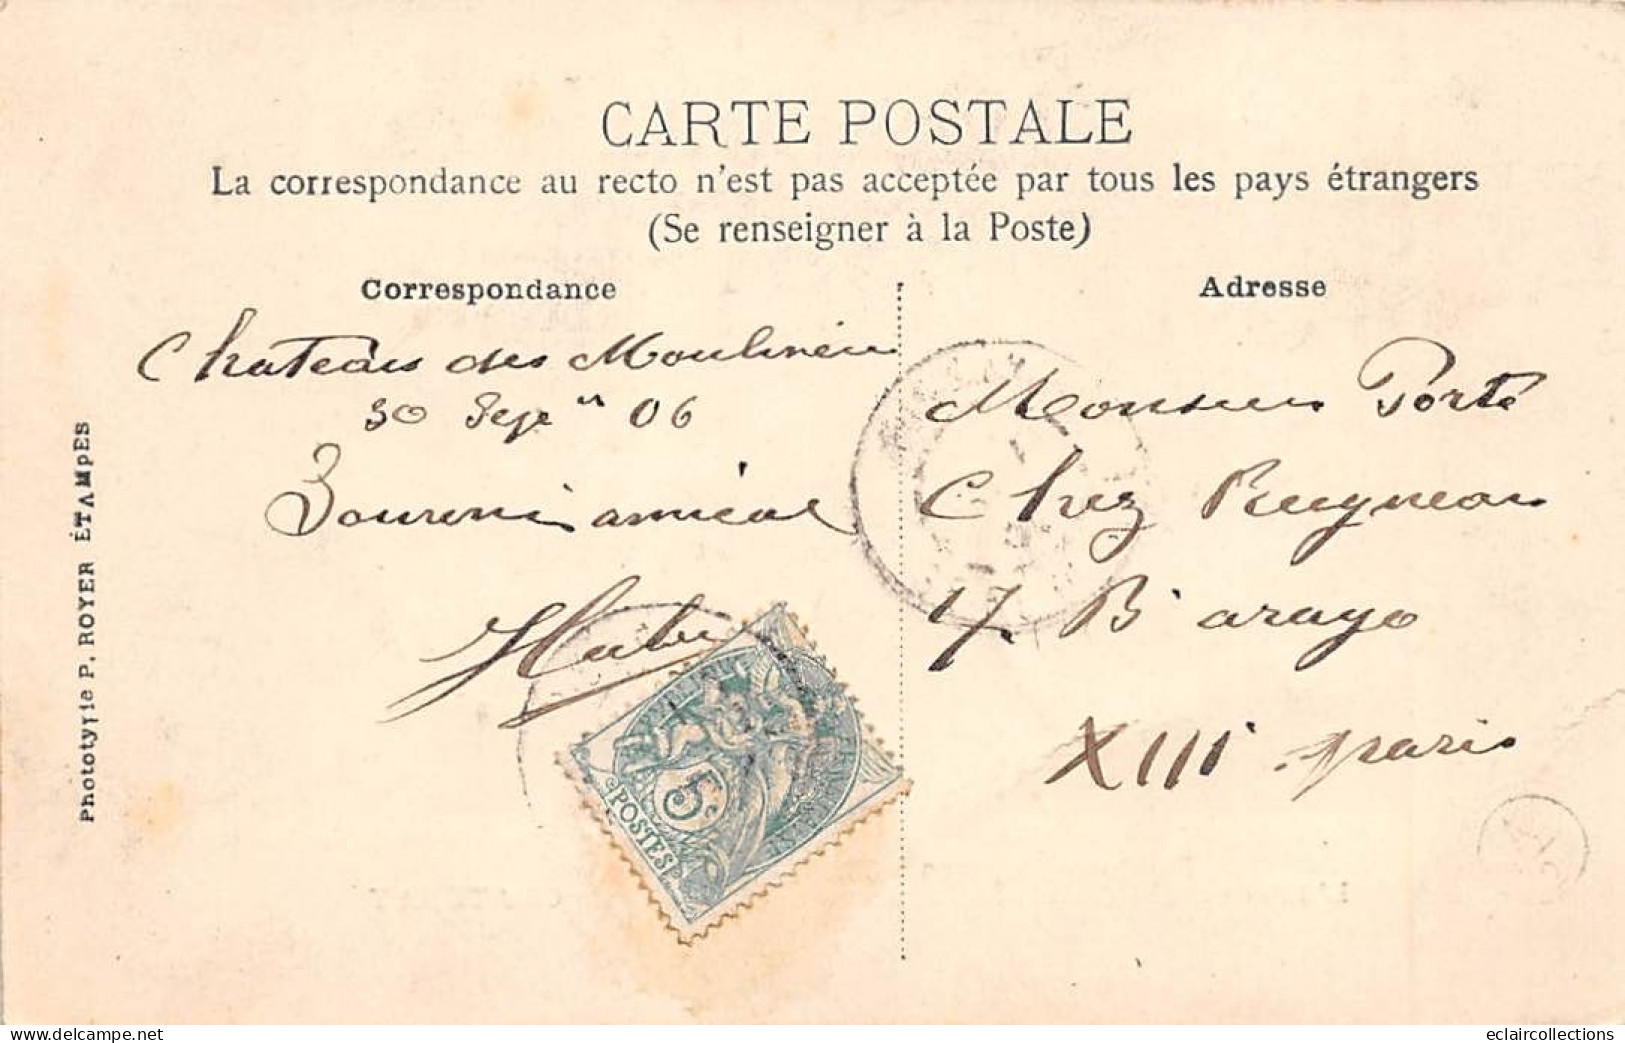 CARTE POSTALE
La correspondance au recto n'est pas acceptée par tous les pays étrangers
(Se renseigner à la Poste)
Correspondance
Chateau des
30 06
Souvenir amical
Adresse
Monsieur Porte
Chez
17 Bd arago
XIII paris
5c
POSTES
Phototypie P. ROYER ÉTAMPES
www.delcampe.net
eclaircollections